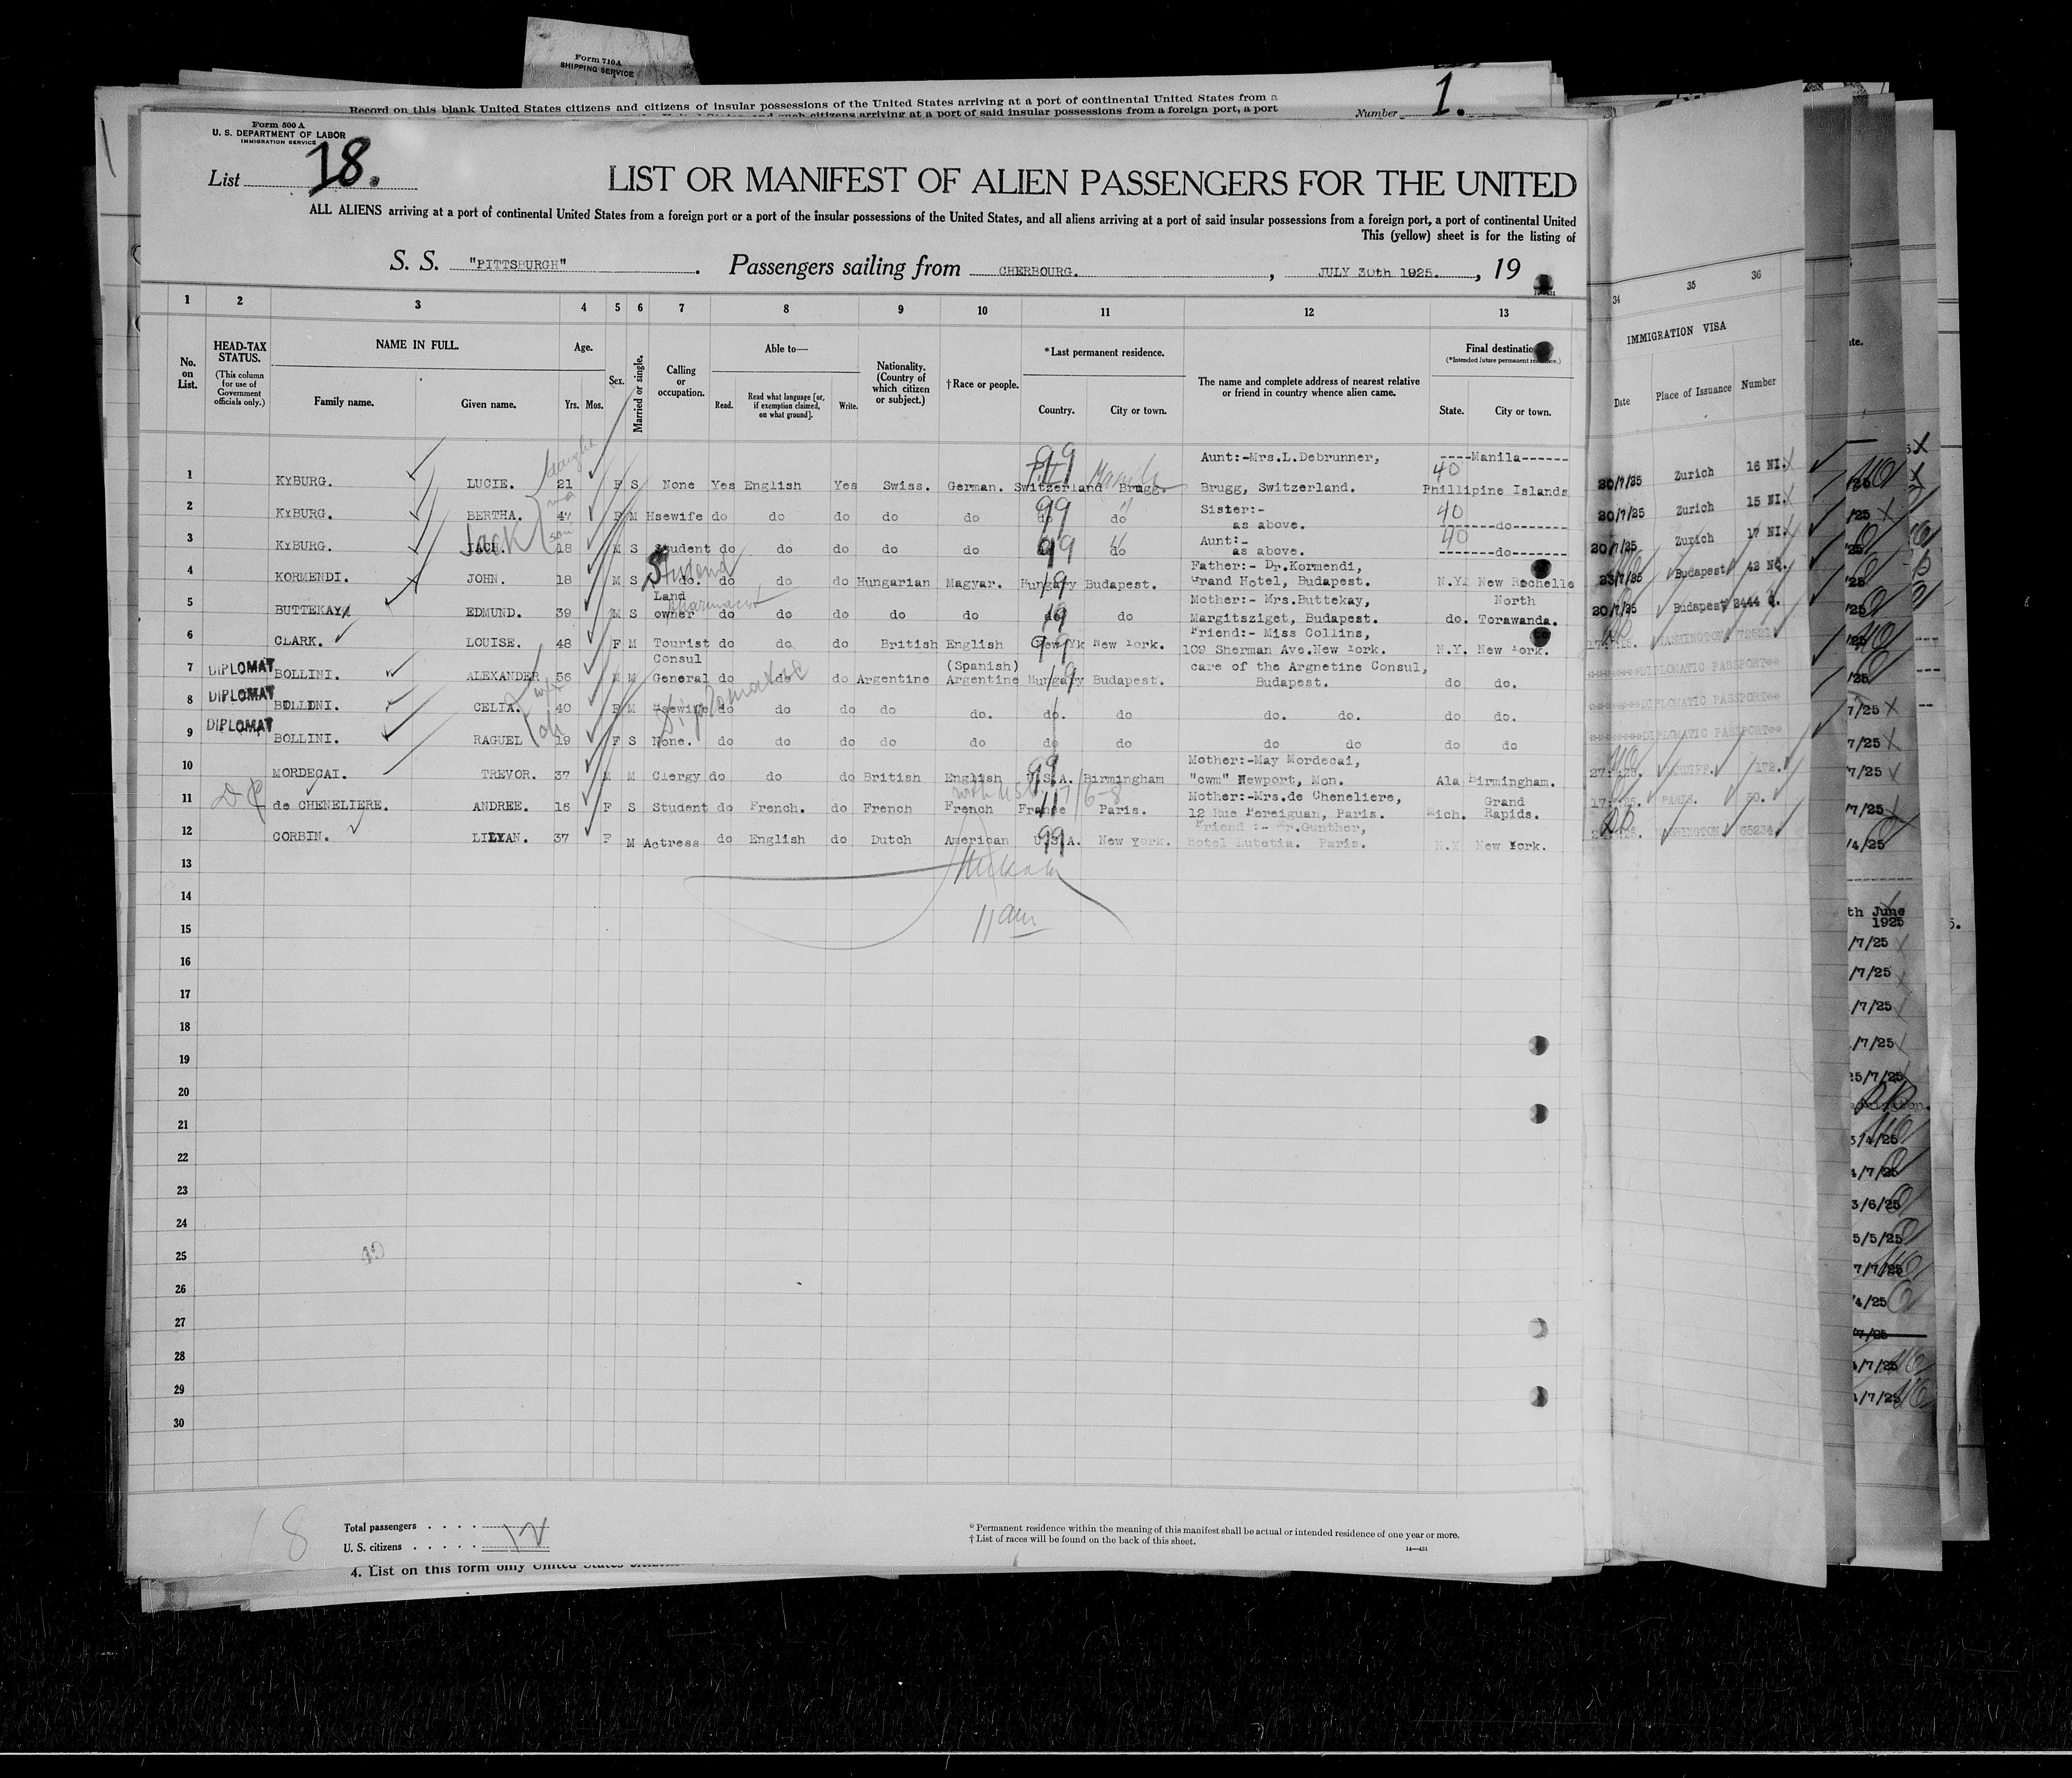 Form 710A
SHIPPING SERVICE
Record on this blank United States citizens and citizens of insular possessions of the United States arriving at a port of continental United States from a
such citizens arriving at a port of said insular possessions from a foreign port, a port
Number 1.
Form 500 A
U. S. DEPARTMENT OF LABOR
IMMIGRATION SERVICE
List 18.
LIST OR MANIFEST OF ALIEN PASSENGERS FOR THE UNITED
ALL ALIENS arriving at a port of continental United States from a foreign port or a port of the insular possessions of the United States, and all aliens arriving at a port of said insular possessions from a foreign port, a port of continental United
This (yellow) sheet is for the listing of
S. S. "PITTSBURGH" . Passengers sailing from CHERBOURG. , JULY 30th 1925. , 19
1 2 3 4 5 6 7 8 9 10 11 12 13 34 35 36
No. on List.
HEAD-TAX STATUS.
(This column for use of Government officials only.)
NAME IN FULL.
Family name. Given name.
Age.
Yrs. Mos.
Sex.
Married or single.
Calling or occupation.
Able to—
Read. Read what language [or, if exemption claimed, on what ground]. Write.
Nationality. (Country of which citizen or subject.)
†Race or people.
*Last permanent residence.
Country. City or town.
The name and complete address of nearest relative or friend in country whence alien came.
Final destination
(*Intended future permanent residence.)
State. City or town.
IMMIGRATION VISA
Date Place of Issuance Number
99 Aunt:-Mrs.L.Debrunner, ----Manila------
1 KYBURG. LUCIE. 21 F S None Yes English Yes Swiss. German. Switzerland Brugg. Manila Brugg, Switzerland. 40 Phillipine Islands 20/7/25 Zurich 16 NI.
daughter
2 KYBURG. BERTHA. 47 F M Hsewife do do do do do do 99 do Sister:- as above. 40 -------do------- 20/7/25 Zurich 15 NI.
3 KYBURG. Jack 18 M S Student do do do do do do 99 do Aunt:- as above. 40 -------do------- 20/7/25 Zurich 17 NI.
son
4 KORMENDI. JOHN. 18 M S do. Student do do do Hungarian Magyar. Hungary 19 Budapest. Father:- Dr.Kormendi, Grand Hotel, Budapest. N.Y. New Rochelle 23/7/25 Budapest 42 NQ.
5 BUTTEKAY EDMUND. 39 M S Land owner do do do do do do 19 do Mother:- Mrs.Buttekay, Margitsziget, Budapest. do. North Torawanda. 20/7/25 Budapest 2444
6 CLARK. LOUISE. 48 F M Tourist do do do British English New Yk 99 New York. Friend:- Miss Collins, 109 Sherman Ave.New York. N.Y. New York. WASHINGTON
7 DIPLOMAT BOLLINI. ALEXANDER 56 M M Consul General do do do Argentine (Spanish) Argentine Hungary 19 Budapest. care of the Argnetine Consul, Budapest. do do. DIPLOMATIC PASSPORT
8 DIPLOMAT BOLLINI. CELIA. wife 40 F M Hsewife do do do do do. do. do do. do. do do. DIPLOMATIC PASSPORT
9 DIPLOMAT BOLLINI. RAGUEL 19 F S None. do do do do do do do do do do do DIPLOMATIC PASSPORT
10 MORDECAI. TREVOR. 37 M M Clergy do do do British English U.S.A. 99 Birmingham Mother:-May Mordecai, "cwm" Newport, Mon. Ala Birmingham. 172.
11 de CHENELIERE. ANDREE. 16 F S Student do French. do French French France 11 Paris. Mother:-Mrs.de Cheneliere, 12 Rue Pereiguan, Paris. Mich. Grand Rapids. PARIS. 50.
12 CORBIN. LILYAN. 37 F M Actress do English do Dutch American U.S.A. 99 New York. Friend :- Mr.Gunther, Hotel Lutetia. Paris. N.Y New York.
13
11 am
14
15
16
17
18
19
20
21
22
23
24
25
26
27
28
29
30
Total passengers . . . . 12
U. S. citizens . . . . .
18
* Permanent residence within the meaning of this manifest shall be actual or intended residence of one year or more.
† List of races will be found on the back of this sheet.
14—431
4. List on this form only United States
th June
1925